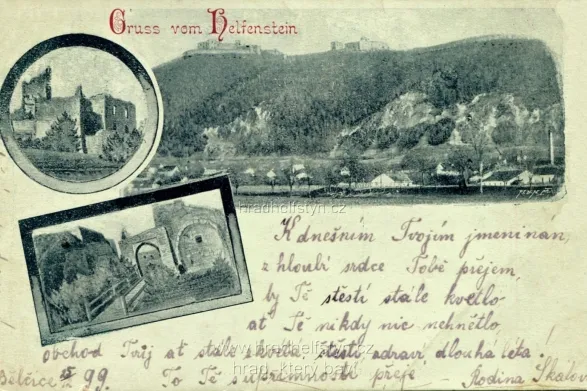 Gruss vom Helfenstein
www.hradhelfstyn.cz
K dnešním Tvojim jmeninam,
z hloubi srdce Tobě přejem,
by Tě stěstí stále kvetlo
at Tě nikdy nic nehnětlo,
www.hradhelfstyn.cz
obchod Tvůj at stále zkvétá, štěstí, zdraví dlouhá léta.
hrad, který baví
Bělčice 99. To Tě s upřímností přeje – Rodina